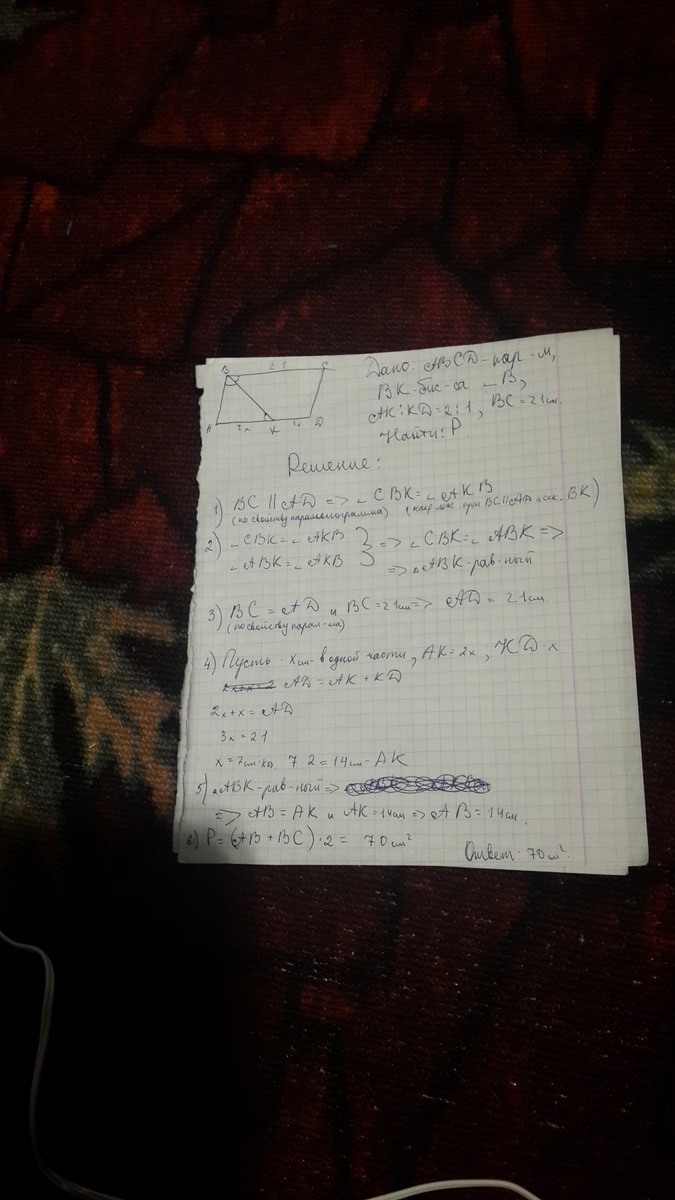 B 21 C
A 2x K 1x D
Дано: ABCD-пар-м,
BK-бис-са ∟B,
AK:KD=2:1, BC=21см.
Найти: P
Решение:
1) BC II AD => ∟CBK=∟AKB
(по свойству параллелограмма) (накр леж при BC II AD и сек. BK)
2) ∟CBK=∟AKB
∟ABK=∟AKB } => ∟CBK=∟ABK =>
=> △ABK-рав-ный
3) BC = AD и BC=21см => AD = 21см
(по свойству парал-ма)
4) Пусть - x см- в одной части, AK=2x; KD-x
AD=AK+KD
2x+x=AD
3x=21
x=7см-KD. 7·2=14см-AK
5) △ABK-рав-ный =>
=> AB=AK и AK=14см => AB=14см.
6) P=(AB+BC)·2= 70см²
Ответ: 70см².